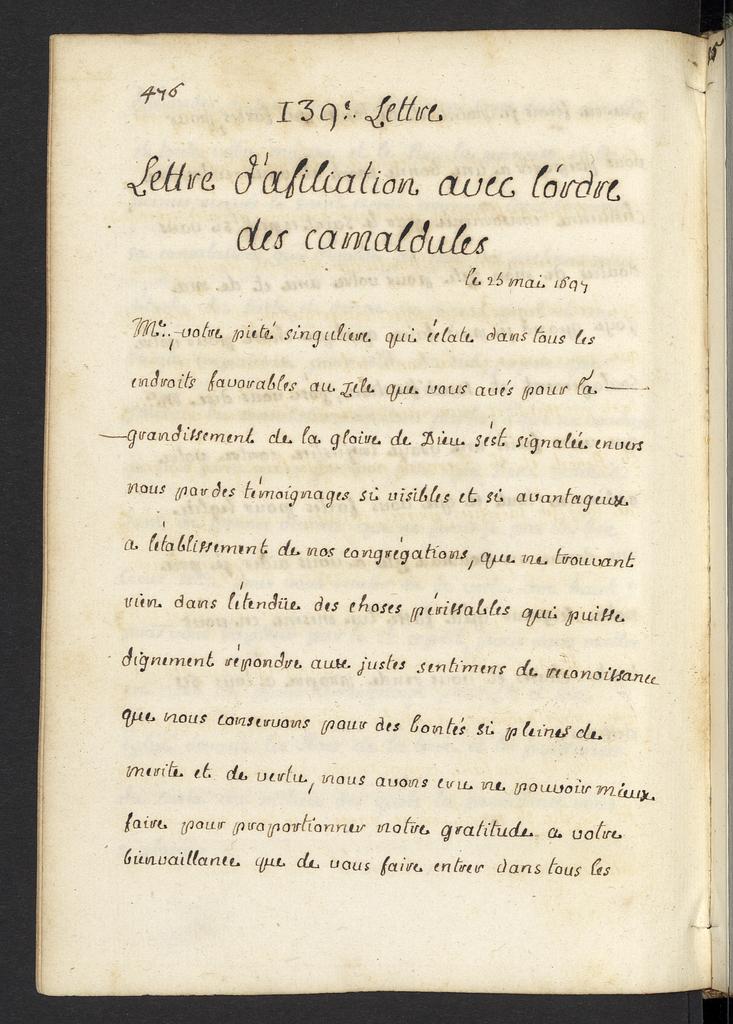 476
139e. Lettre
Lettre d'afiliation avec l'ordre
des camaldules
le 25 mai 1697
Mr. votre pieté singuliere qui éclate dans tous les
endroits favorables au zele que vous avés pour la
grandissement de la gloire de Dieu s'est signalée envers
nous par des témoignages si visibles et si avantageux
a l'établissement de nos congrégations, que ne trouvant
rien dans l'étendüe des choses périssables qui puisse
dignement répondre aux justes sentimens de reconoissance
que nous conservons pour des bontés si pleines de
merite et de vertu, nous avons cru ne pouvoir mieux
faire pour proportionner notre gratitude a votre
bienvaillance que de vous faire entrer dans tous les